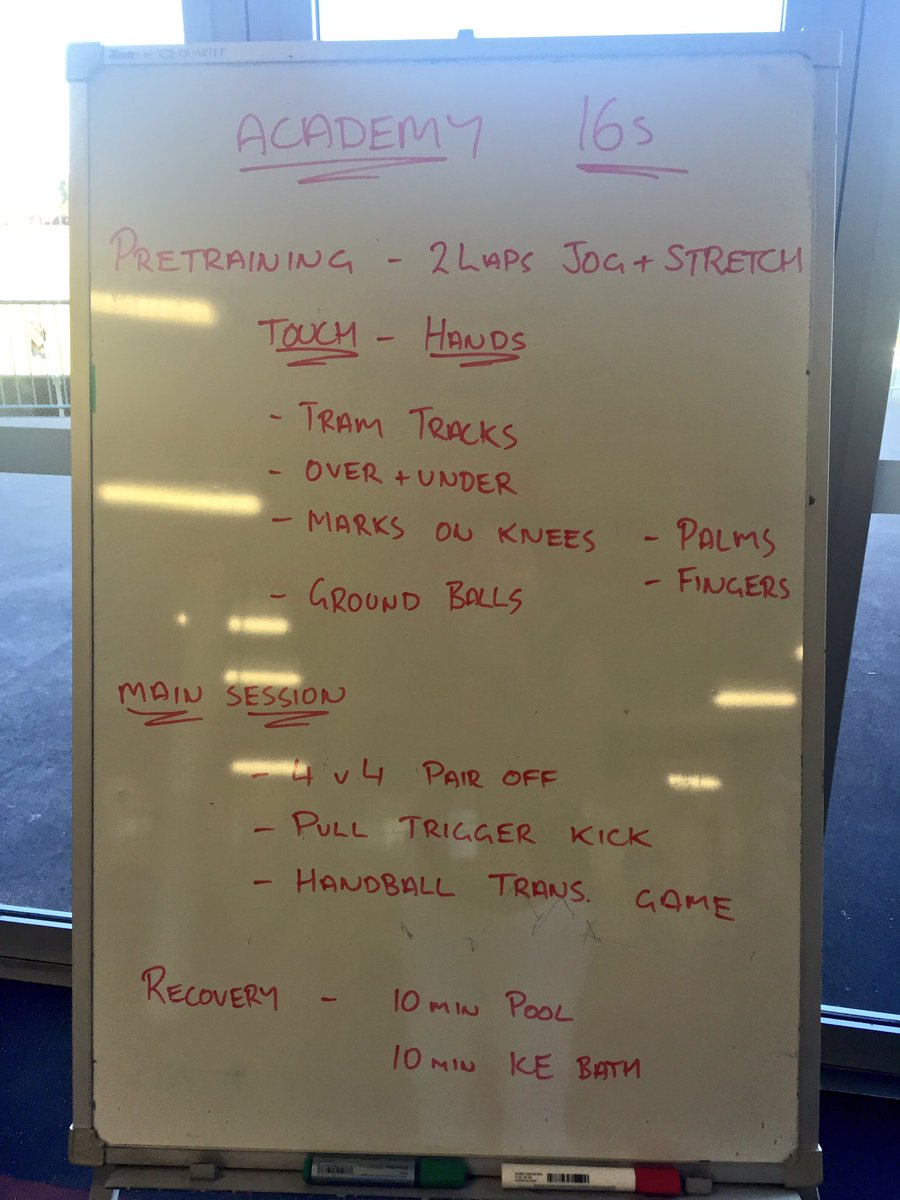 QUARTET
ACADEMY 16s
PRETRAINING - 2 LAPS JOG + STRETCH
TOUCH - HANDS
- TRAM TRACKS
- OVER + UNDER
- MARKS ON KNEES - PALMS
- FINGERS
- GROUND BALLS
MAIN SESSION
- 4 v 4 PAIR OFF
- PULL TRIGGER KICK
- HANDBALL TRANS. GAME
RECOVERY - 10 MIN POOL
10 MIN ICE BATH